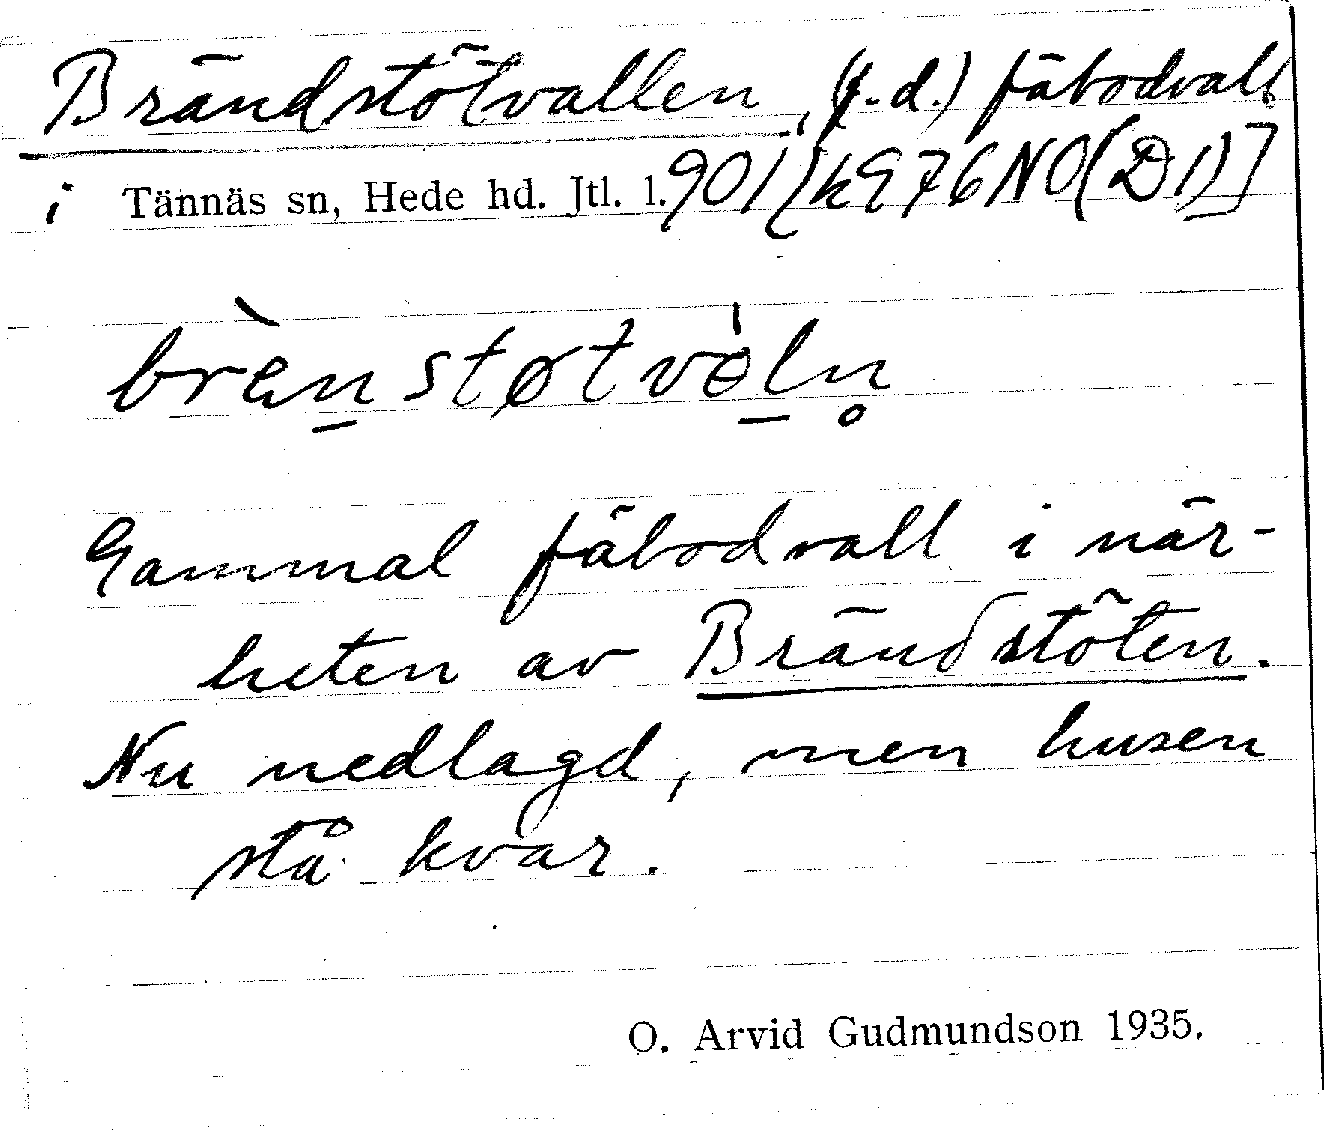 Brändstötvallen, (f.d.) fäbodvall
i Tännäs sn, Hede hd. Jtl. l. 901 [k976NO(D1)]
brèn̲støtvòl̲n̥
Gammal fäbodvall i när-
heten av Brändstöten.
Nu nedlagd, men husen
stå kvar.
O. Arvid Gudmundson 1935.